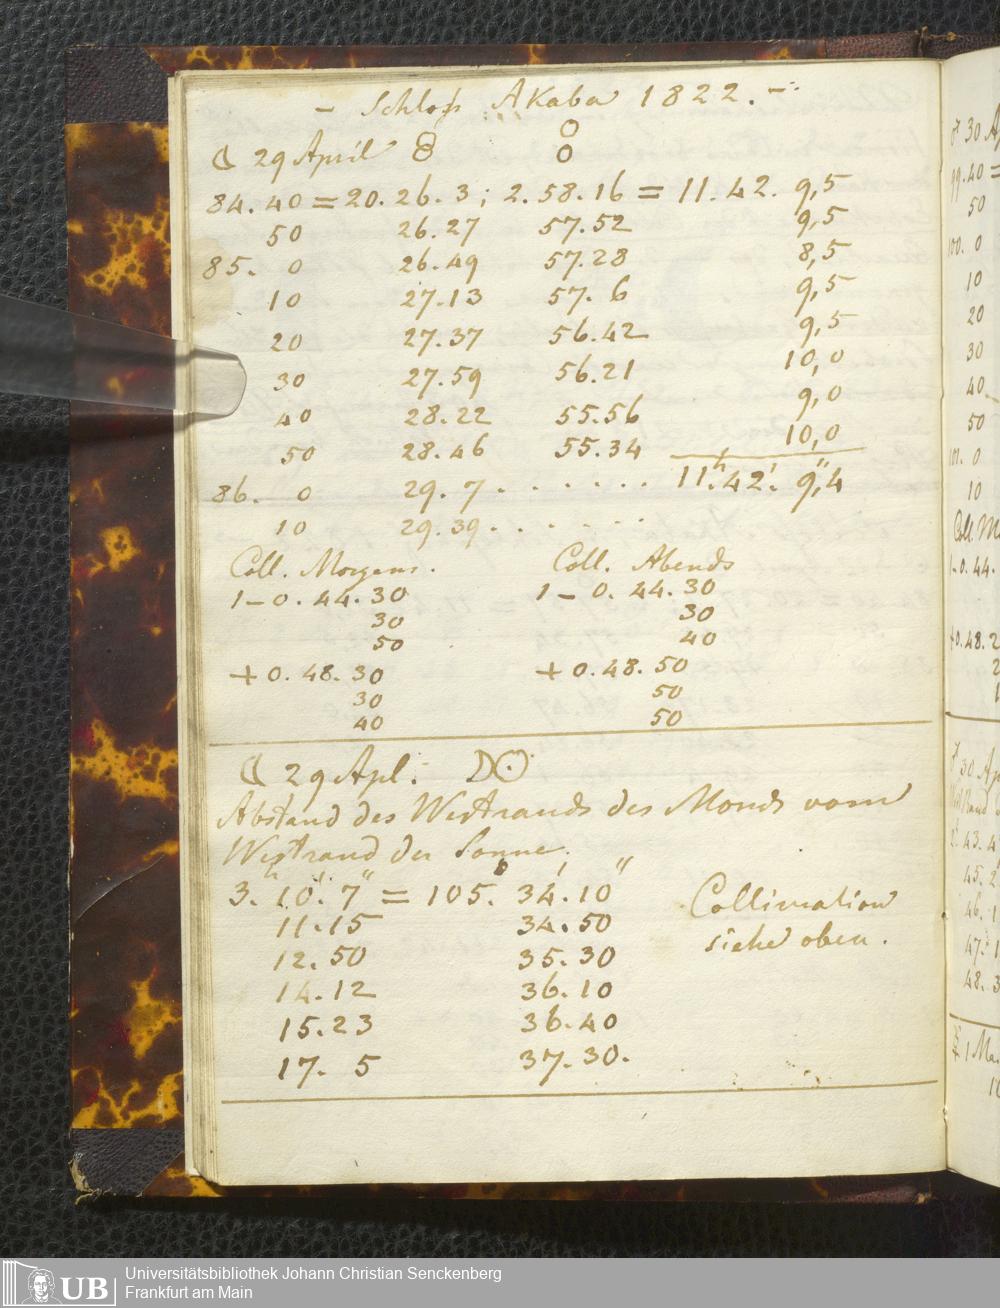 - Schloss Akaba 1822. -
☾ 29 April
84.40 = 20.26. 3; 2.58.16 = 11.42. 9,5
50 26.27 57.52 9,5
85. 0 26.49 57.28 8,5
10 27.13 57. 6 9,5
20 27.37 56.42 9,5
30 27.59 56.21 10,0
40 28.22 55.56 9,0
50 28.46 55.34 10,0
86. 0 29. 7 . . . . . . . 11.h 42.' 9,"4
10 29.39 . . . . . .
Coll. Morgens. Coll. Abends
1 - 0. 44. 30 1 - 0. 44. 30
30 30
50 40
+ 0. 48. 30 + 0. 48. 50
30 50
40 50
☾ 29 Apl. ☽☉
Abstand des Westrands des Monds vom
Westrand der Sonne.
3.h 10.' 7" = 105.° 34.' 10"
11.15 34.50
12.50 35.30
14.12 36.10
15.23 36.40
17. 5 37.30.
Collimation
siehe oben.
♂ 30 Ap
99.40 =
50
100. 0
10
20
30
40
50
101. 0
10
Coll. Mo
1-0.44.
+0.48.2
♂ 30 Ap
43.4
45.2
46.1
47.1
48.3
1 Ma
UB
Universitätsbibliothek Johann Christian Senckenberg
Frankfurt am Main